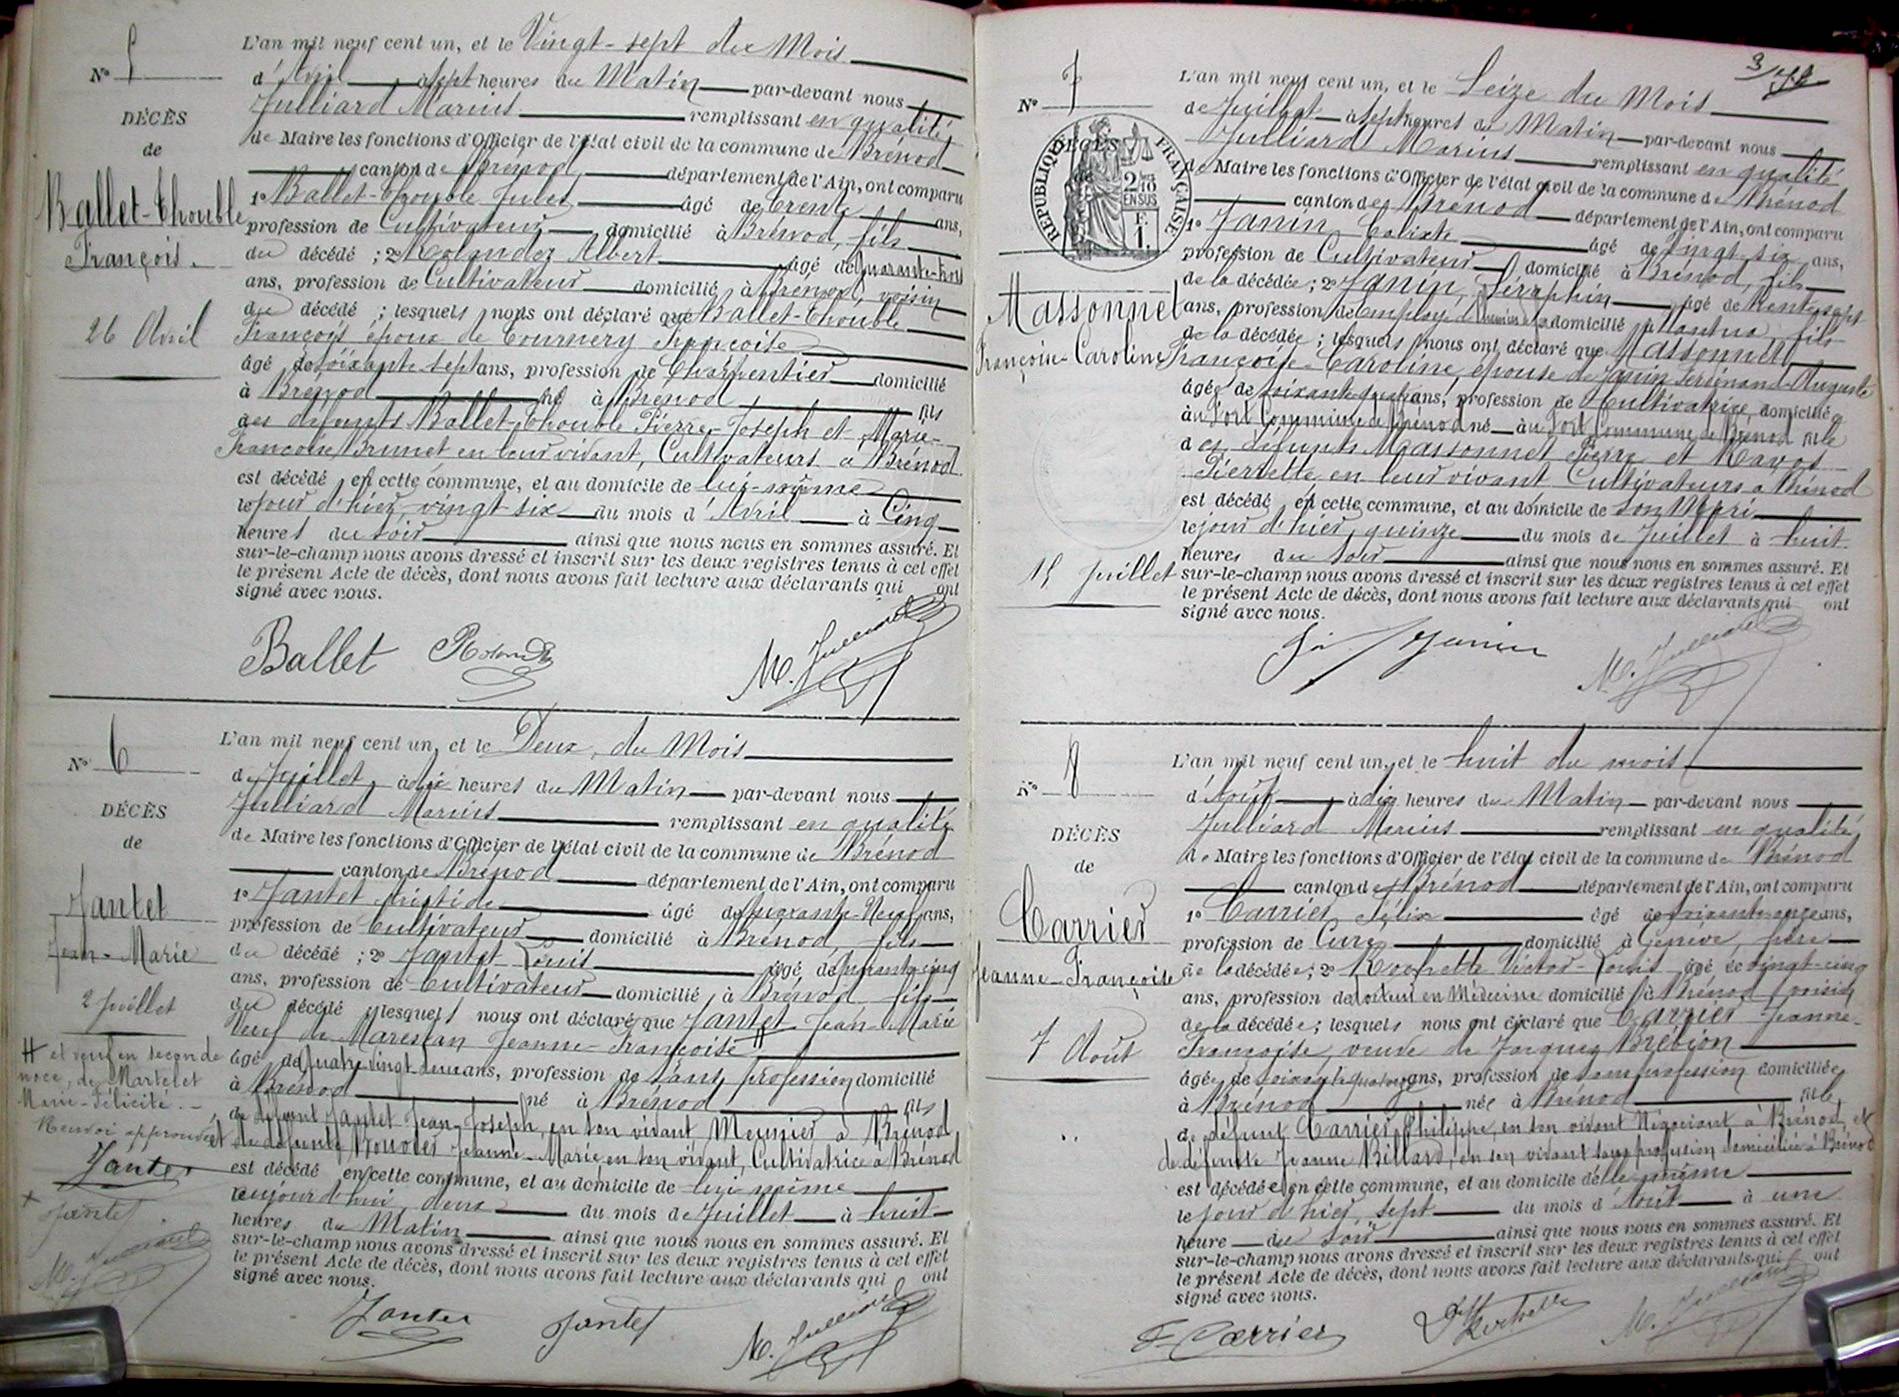 N° 5
DÉCÈS
de
Ballet-Thouble
François.
26 Avril
L'an mil neuf cent un, et le Vingt-sept du Mois
d'Avril à sept heures du Matin par-devant nous
Julliard Marius remplissant en qualité
de Maire les fonctions d'Officier de l'état civil de la commune de Brénod
canton de Brénod département de l'Ain, ont comparu
1° Ballet-Thouble Jules âgé de trente ans,
profession de Cultivateur domicilié à Brénod, fils
du décédé ; 2° Rolandez Albert âgé de quarante-trois
ans, profession de Cultivateur domicilié à Brénod, voisin
du décédé ; lesquels nous ont déclaré que Ballet-Thouble
François époux de Tournery Françoise
âgé de soixante sept ans, profession de Charpentier domicilié
à Brénod né à Brénod fils
des défunts Ballet-Thouble Pierre-Joseph et Marie-
Françoise Brunet en leur vivant, Cultivateurs à Brénod
est décédé en cette commune, et au domicile de lui-même
le jour d'hier, vingt six du mois d'Avril à Cinq
heures du soir ainsi que nous nous en sommes assuré. Et
sur-le-champ nous avons dressé et inscrit sur les deux registres tenus à cet effet
le présent Acte de décès, dont nous avons fait lecture aux déclarants qui ont
signé avec nous.
Ballet M. Julliard
N° 6
DÉCÈS
de
Jantet
Jean-Marie
2 juillet
# et veuf en seconde
noce, de Martelet
Marie-Félicité.
Renvoi approuvé
Jantet
Jantet
M. Julliard
L'an mil neuf cent un, et le Deux, du Mois
de Juillet à dix heures du Matin par-devant nous
Julliard Marius remplissant en qualité
de Maire les fonctions d'Officier de l'état civil de la commune de Brénod
canton de Brénod département de l'Ain, ont comparu
1° Jantet Aristide âgé de quarante-Neuf ans,
profession de Cultivateur domicilié à Brénod, fils
du décédé ; 2° Jantet Louis âgé de quarante cinq
ans, profession de Cultivateur domicilié à Brénod fils
du décédé lesquels nous ont déclaré que Jantet Jean-Marie
Veuf de Marestan Jeanne-Françoise #
âgé de quatre vingt deux ans, profession de sans profession domicilié
à Brénod né à Brénod fils
de défunt Jantet Jean-Joseph, en son vivant Meunier à Brénod
et de défunte Jeanne-Marie, en son vivant, Cultivatrice à Brénod
est décédé en cette commune, et au domicile de lui même
aujourd'hui deux du mois de Juillet à huit
heures du Matin ainsi que nous nous en sommes assuré. Et
sur-le-champ nous avons dressé et inscrit sur les deux registres tenus à cet effet
le présent Acte de décès, dont nous avons fait lecture aux déclarants qui ont
signé avec nous.
Jantet Jantet M. Julliard
3
N° 7
DÉCÈS
de
RÉPUBLIQUE FRANÇAISE
2/10 EN SUS
F. 1.
Massonnet
Françoise-Caroline
15 juillet
L'an mil neuf cent un, et le Seize du Mois
de Juillet à sept heures du Matin par-devant nous
Julliard Marius remplissant en qualité
de Maire les fonctions d'Officier de l'état civil de la commune de Brénod
canton de Brénod département de l'Ain, ont comparu
1° Janin Calixte âgé de vingt-six ans,
profession de Cultivateur domicilié à Brénod, fils
de la décédée ; 2° Janin, Séraphin âgé de trente sept
ans, profession de Employé domicilié à Nantua, fils
de la décédée ; lesquels nous ont déclaré que Massonnet
Françoise-Caroline, épouse de Janin Ferdinand-Auguste
âgée de soixante quatre ans, profession de Cultivatrice domiciliée
à Commune de Brénod née à Commune de Brénod fille
des défunts Massonnet Pierre et Ravot
Pierrette en leur vivant Cultivateurs à Brénod
est décédé en cette commune, et au domicile de son Mari
le jour d'hier, quinze du mois de Juillet à huit
heures du soir ainsi que nous nous en sommes assuré. Et
sur-le-champ nous avons dressé et inscrit sur les deux registres tenus à cet effet
le présent Acte de décès, dont nous avons fait lecture aux déclarants qui ont
signé avec nous.
Janin M. Julliard
N° 8
DÉCÈS
de
Carrier
Jeanne-Françoise
7 Août
L'an mil neuf cent un, et le huit du mois
d'Août à dix heures du Matin par-devant nous
Julliard Marius remplissant en qualité
de Maire les fonctions d'Officier de l'état civil de la commune de Brénod
canton de Brénod département de l'Ain, ont comparu
1° Carrier Félix âgé de soixante-onze ans,
profession de Curé domicilié à Genève, frère
de la décédée ; 2° Rochette Victor-Louis âgé de vingt-cinq
ans, profession de Docteur en Médecine domicilié à Brénod, voisin
de la décédée ; lesquels nous ont déclaré que Carrier Jeanne-
Françoise, veuve de Jacques Brébion
âgée de soixante quatorze ans, profession de sans profession domiciliée
à Brénod née à Brénod fille
de défunt Carrier Philippe, en son vivant Négociant à Brénod, et
de défunte Jeanne Billard, en son vivant sans profession domiciliée à Brénod
est décédée en cette commune, et au domicile d'elle même
le jour d'hier, sept du mois d'Août à une
heure du soir ainsi que nous nous en sommes assuré. Et
sur-le-champ nous avons dressé et inscrit sur les deux registres tenus à cet effet
le présent Acte de décès, dont nous avons fait lecture aux déclarants qui ont
signé avec nous.
F. Carrier Rochette M. Julliard